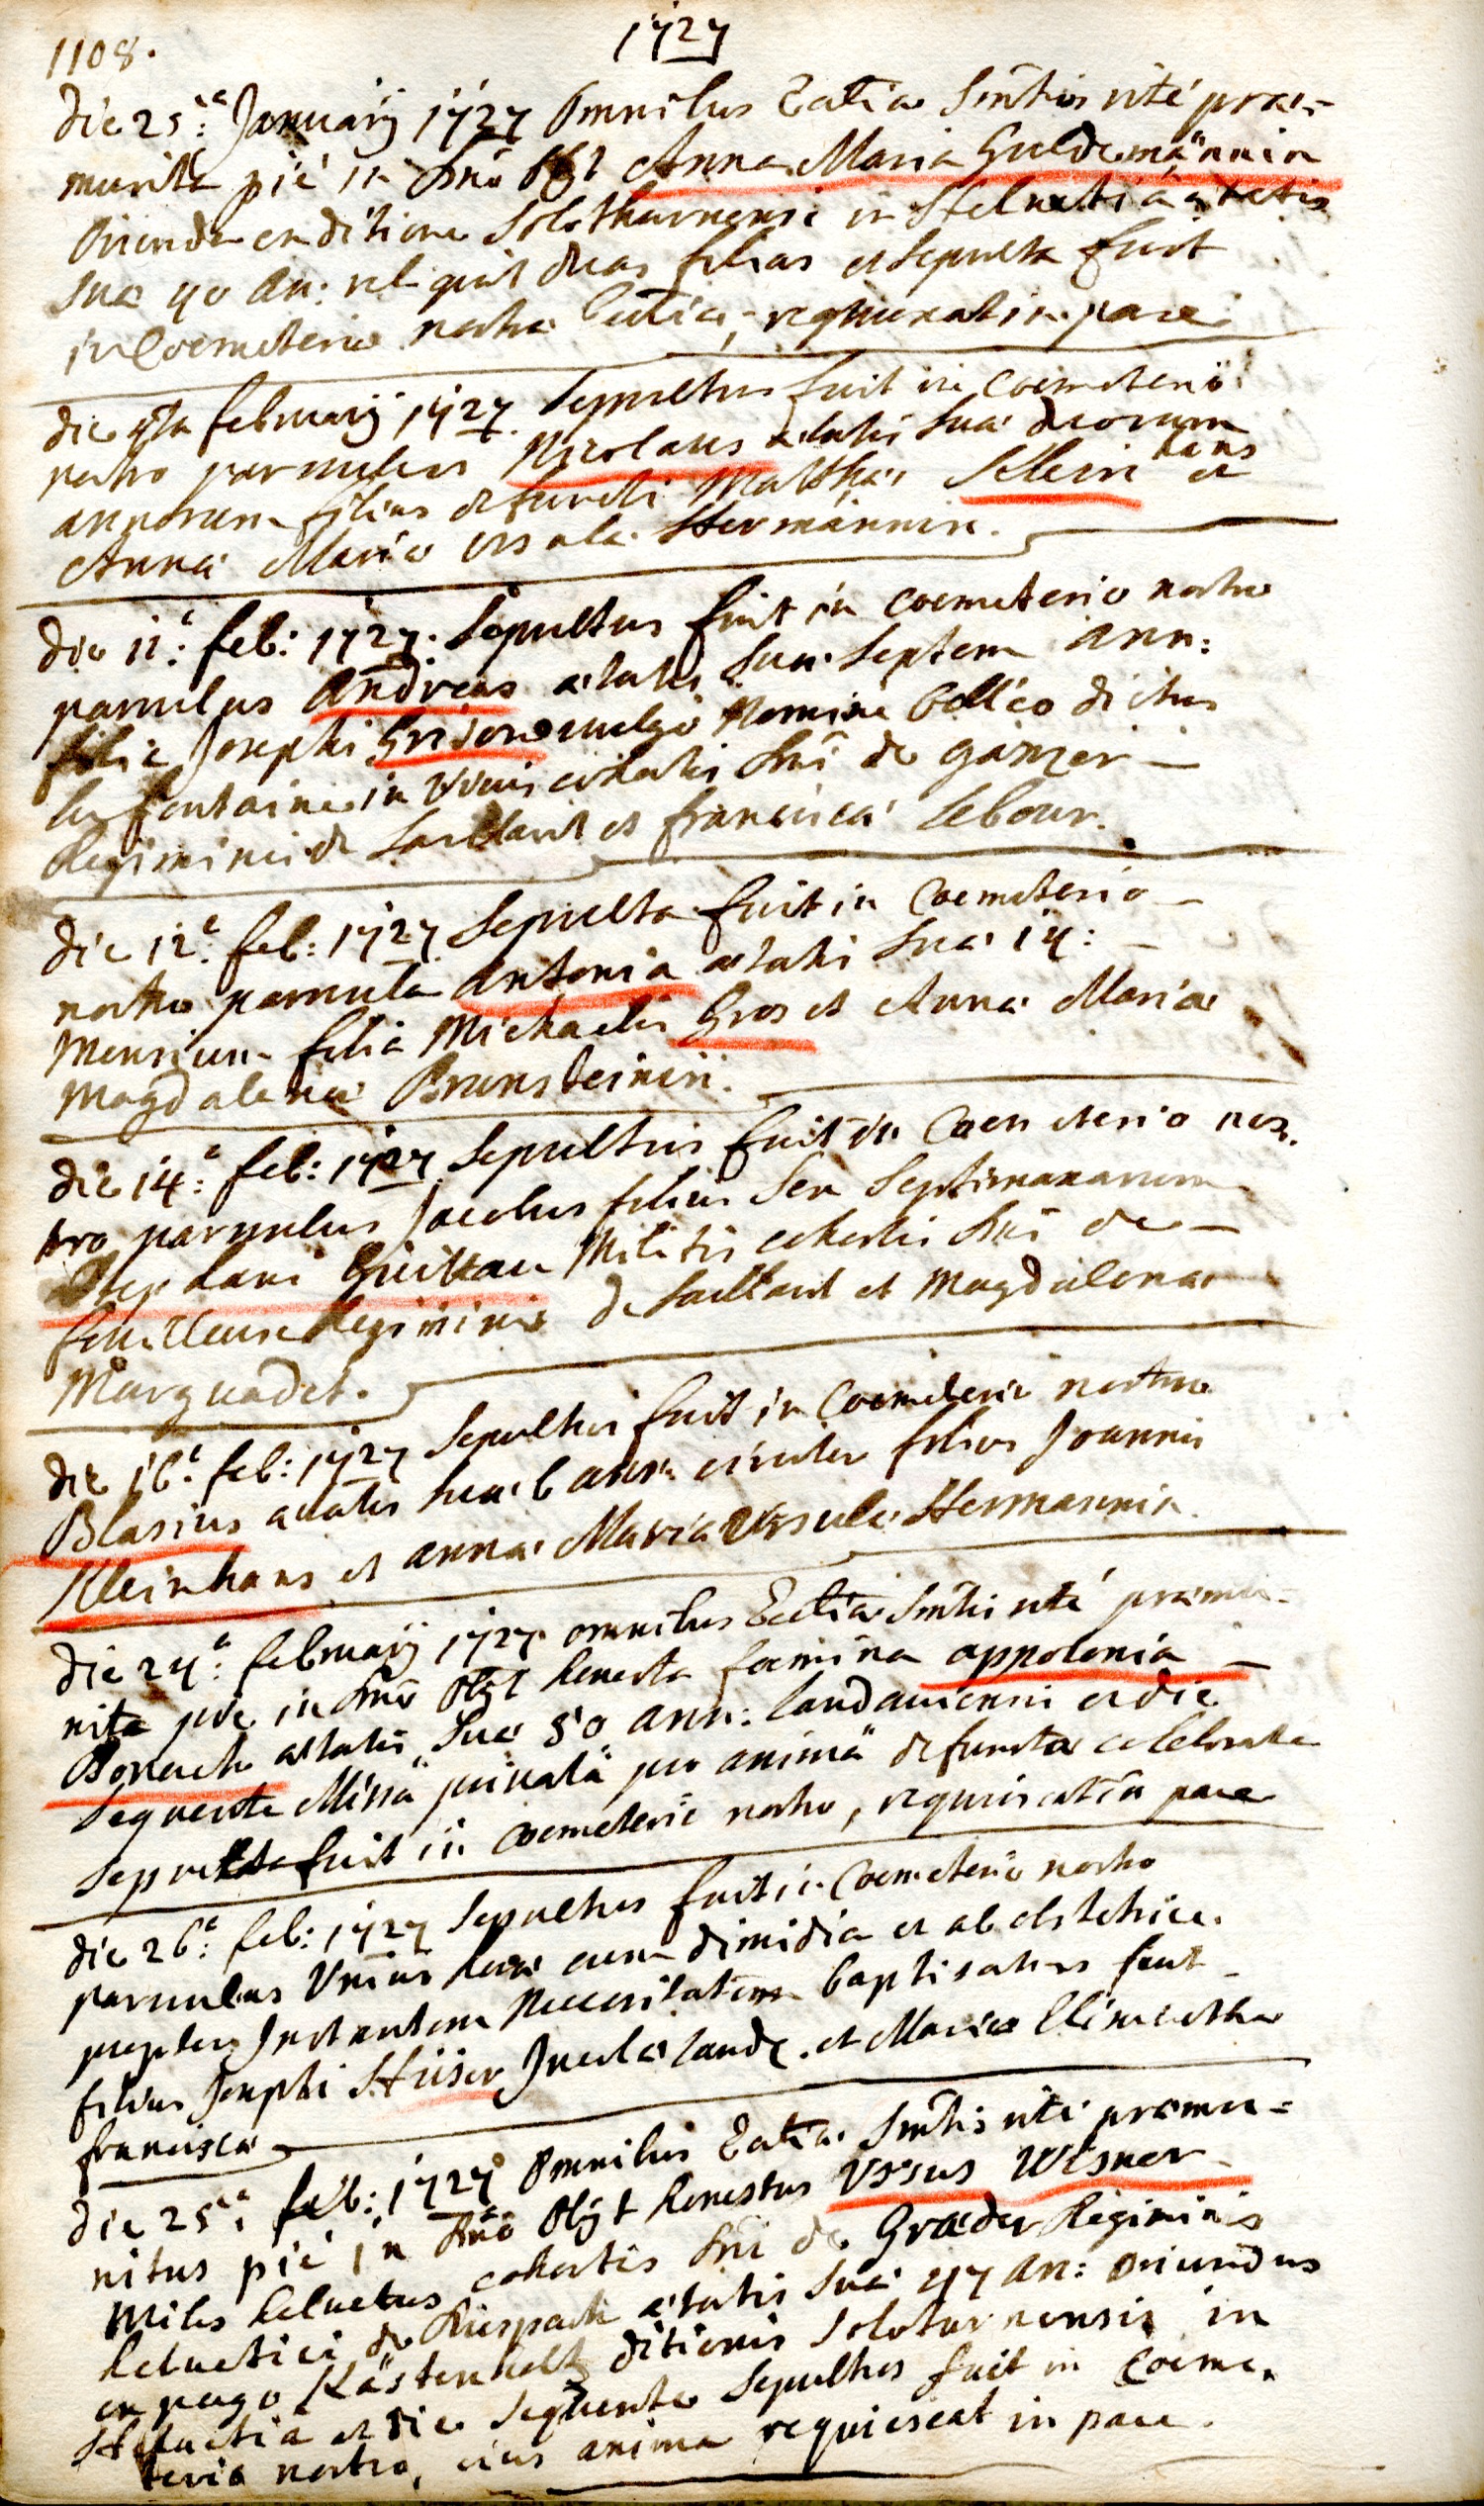 1108.
1727
die 25.a Januarij 1727 Omnibus Ecclia Smtis rité prae-
munita pié in Dno obyt Anna Maria Guldemännin
Oriunda ex ditione Solothurnensi in Helvetia aetatis
suae 40 an: reliquit duas filias et sepulta fuit
in Coemeterio nostra Ecclia, requiescat in pace.
die 4ta februarij 1727. Sepultus fuit in coemeterio
nostro parvulus Nicolaus aetatis sua duorum
annorum filius defuncti Matthaei Kleinhans et
Anna Maria Ursula Hermännin.
die 11.a feb: 1727. Sepultus fuit in coemeterio nostro
parvulus Andreas aetatis sua septem ann:
filie Josephi Grison vulgo Nomine bellico dictus
la fontaine in cohortis Dni de ganzer
Regiminis de Saillant et francisca Lebour.
die 12.a feb: 1727 Sepulta fuit in Coemeterio
nostro parvula Antonia aetatis sua 14:
Mensium filia Michaelis Gros et Anna Maria
Magdalena Brunsteinin.
die 14.a feb: 1727 Sepultus fuit in Coemeterio nos-
tro parvulus Jacobus filius sex septimanarum
Stephani Militis cohortis Dni de
Regiminis de Saillant et Magdalena
Marquadet.
die 16.a feb: 1727 Sepultus fuit in Coemeterio nostro
Blasius aetatis sua 6 ann: circiter filius Joannis
Kleinhans et anna Maria Ursula Hermannin.
die 24.a februarij 1727 omnibus Ecclia Smtis rité praemu-
nita pie in Dno obyt honesta foemina appolonia
aetatis suae 50 ann: landaviensis et die
sequente Missa privatâ pro animâ defuncta celebrata
sepulta fuit in coemeterio nostro, requiescat in pace
die 26.a feb: 1727 Sepultus fuit in Coemeterio nostro
parvulus Unius hora cum dimidia et ab obstetrice
propter Instantem Necessitatem baptisatus fuit
filius Josephi Hüser Incola land. et Maria Elisabetha
francisca
die 25.a feb: 1727 Omnibus Ecclia Smtis rité praemu-
nitus pié in Dno obyt honestus Ursus Wisner
Miles helvetus cohortis Dni de Grader Regiminis
helvetici de aetatis sua 47 an: oriundus
ex pago Kästenholtz ditionis Soloturnensis in
Helvetia et die sequente sepultus fuit in Coeme-
terio nostro, eius anima requiescat in pace.